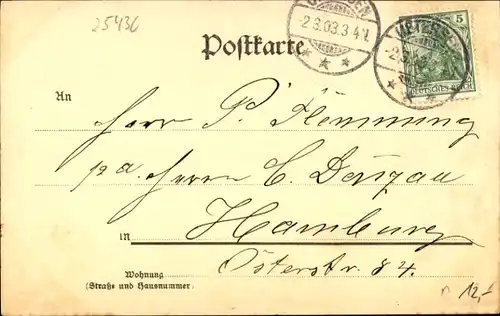 25436
-2.3.03.3-4V.
Postkarte
5
DEUTSCHES REICH
An
Herrn P. Flemming
p a. Herrn C.
Hamburg
in
Osterstr. 84.
Wohnung
(Straße und Hausnummer)
12,-